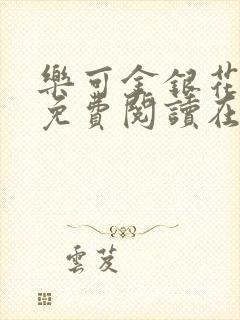 樂可金銀花
免費閱讀在
雲芨